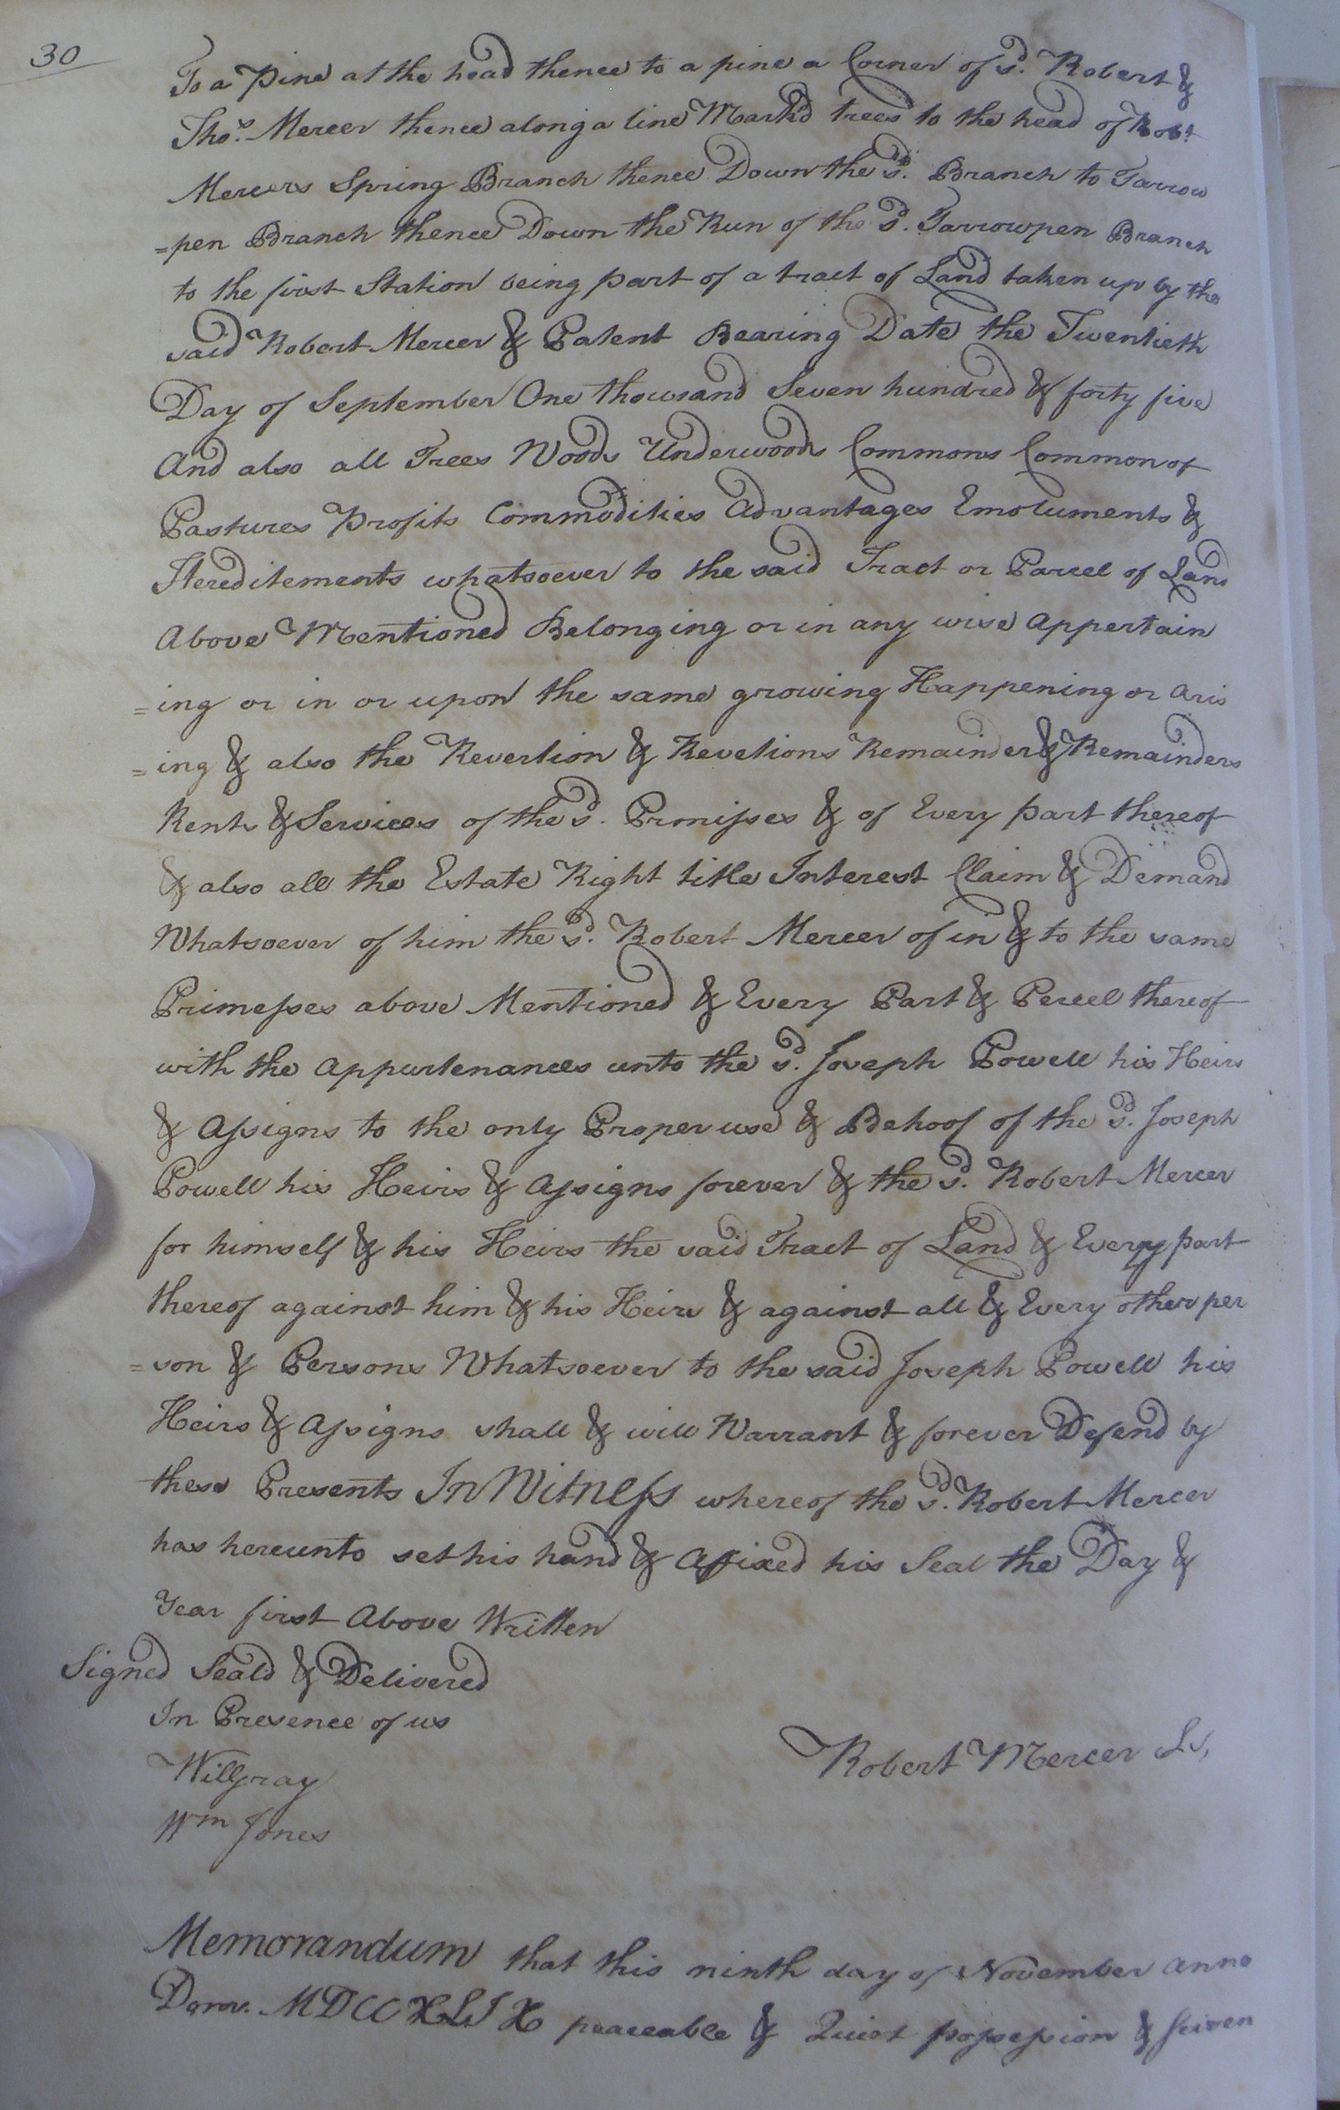 30
To a Pine at the head thence to a pine a Corner of sd. Robert &
Thos. Mercer thence along a line Markd trees to the head of Robt
Mercers Spring Branch thence Down the sd. Branch to Tarrow
=pen Branch thence Down the Run of the sd. Tarrowpen Branch
to the first Station being part of a tract of Land taken up by the
said Robert Mercer & Patent Bearing Date the Twentieth
Day of September One thousand Seven hundred & forty five
And also all Trees Woods Underwoods Commons Common of
Pastures Profits Commodities Advantages Emoluments &
Hereditements whatsoever to the said Tract or Parcel of Land
Above Mentioned Belonging or in any wise Appertain
=ing or in or upon the same growing Happening or Aris
=ing & also the Revertion & Revetions Remainder & Remainders
Rents & Services of the sd. Prmisses & of Every part thereof
& also all the Estate Right title Interest Claim & Demand
Whatsoever of him the sd. Robert Mercer of in & to the same
Primesses above Mentioned & Every Part & Percel thereof
with the Appurtenances unto the sd. Joseph Powell his Heirs
& Assigns to the only Proper use & Behoof of the sd. Joseph
Powell his Heirs & Assigns forever & the sd. Robert Mercer
for himself & his Heirs the said Tract of Land & Every part
thereof against him & his Heirs & against all & Every other per
=son & Persons Whatsoever to the said Joseph Powell his
Heirs & Assigns shall & will Warrant & forever Defend by
these Presents In Witness whereof the sd. Robert Mercer
has hereunto set his hand & Affixed his Seal the Day &
Year first Above Written
Signed Seald & Delivered
In Presence of us
Robert Mercer Ls,
Will Gray
Wm Jones
Memorandum that this ninth day of November Anno
Dom. MDCCXLIX peaceable & Quiet possession & seisen